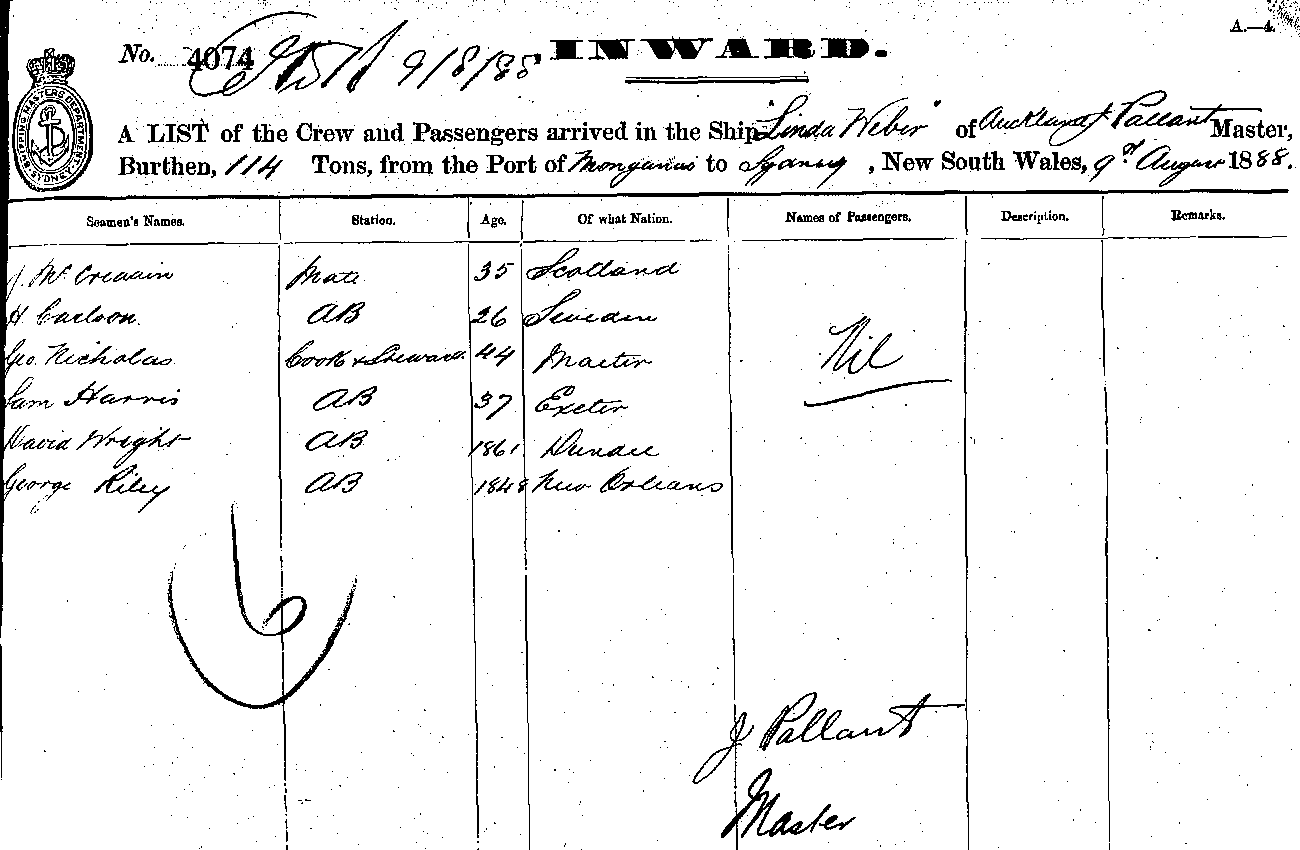 A.—4.
No. 4074 9/8/88 INWARD.
SHIPPING MASTERS DEPARTMENT SYDNEY
A LIST of the Crew and Passengers arrived in the Ship "Linda Weber" of Auckland J Pallant Master,
Burthen, 114 Tons, from the Port of Monganui to Sydney, New South Wales, 9th August 1888.
Seamen's Names. Station. Age. Of what Nation. Names of Passengers. Description. Remarks.
J. Mc Mate 35 Scotland
H Carlson. AB 26 Sweden
Geo. Nicholas Cook & Steward 44
Nil
Sam Harris AB 37 Exeter
David Wright AB 1861 Dundee
George Riley AB 1848 New Orleans
6
J Pallant
Master